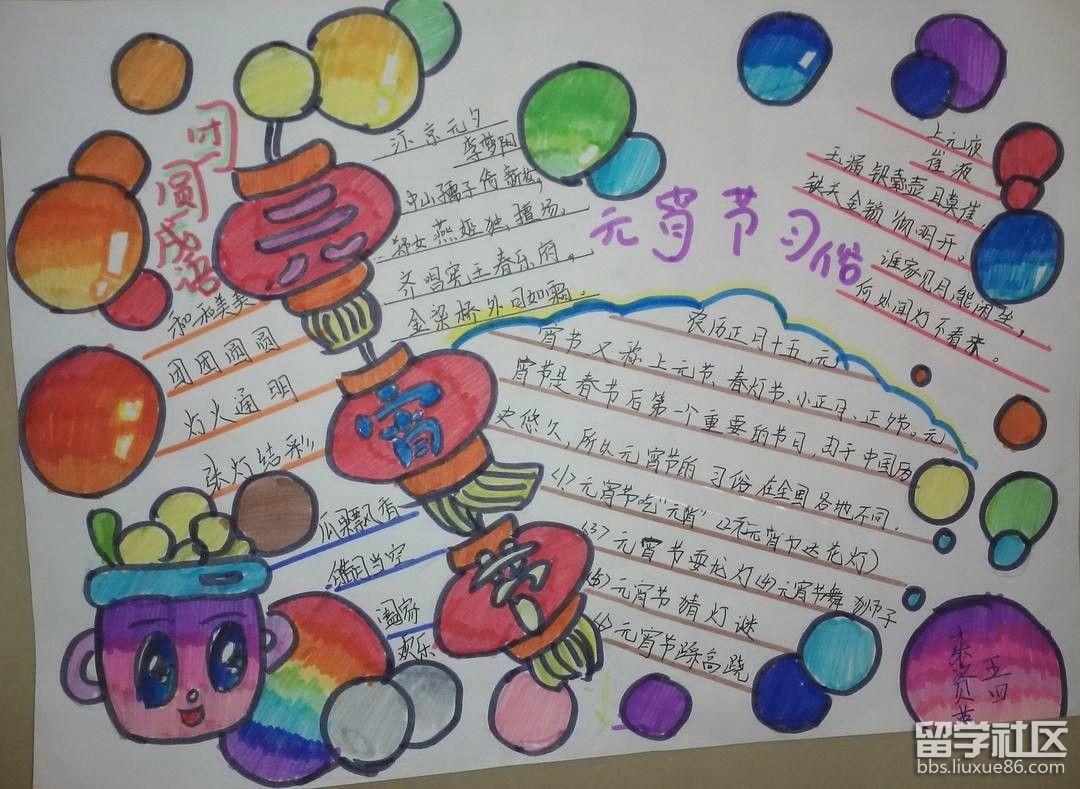 团圆成语
和和美美
团团圆圆
灯火通明
张灯结彩
瓜果飘香
皓月当空
阖家
欢乐
元宵节
汴京元夕
李梦阳
中山孺子倚新妆，
郑女燕姬独擅场。
齐唱宪王春乐府，
金梁桥外月如霜。
元宵节习俗
农历正月十五，元
宵节又称上元节、春灯节、小正月、正夕节。元
宵节是春节后第一个重要的节日，由于中国历
史悠久，所以元宵节的习俗在全国各地不同。
<1>元宵节吃"元宵"
元宵节送花灯
<3>元宵节耍龙灯<4>元宵节舞狮子
<5>元宵节猜灯谜
<6>元宵节踩高跷
上元夜
崔液
玉漏银壶且莫催，
铁关金锁彻明开。
谁家见月能闲坐，
何处闻灯不看来。
五四
留学社区
bbs.liuxue86.com